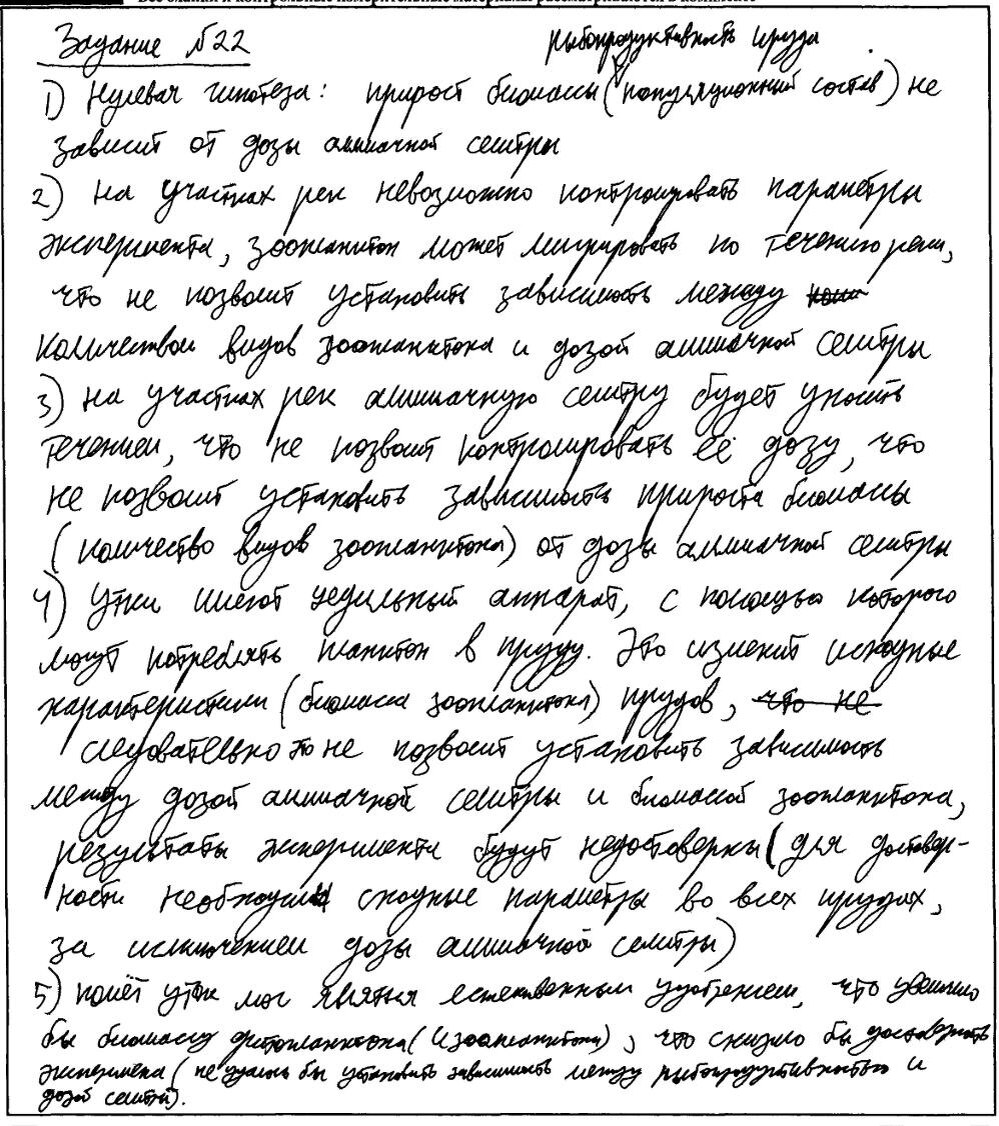 Все бланки и контрольные измерительные материалы рассматриваются в комплекте
Задание №22
рыбопродуктивность пруда
1) Нулевая гипотеза: прирост биомассы (популяционный состав) не
зависит от дозы аммиачной селитры
2) на участках рек невозможно контролировать параметры
эксперимента, зоопланктон может мигрировать по течению реки,
что не позволит установить зависимость между
количеством видов зоопланктона и дозой аммиачной селитры
3) на участках рек аммиачную селитру будет уносить
течением, что не позволит контролировать её дозу, что
не позволит установить зависимость прироста биомассы
(количество видов зоопланктона) от дозы аммиачной селитры
4) Утки имеют цедильный аппарат, с помощью которого
могут потреблять планктон в пруду. Это изменит исходные
характеристики (биомасса зоопланктона) прудов, что не
следовательно это не позволит установить зависимость
между дозой аммиачной селитры и биомассой зоопланктона,
результаты эксперимента будут недостоверны (для достовер-
ности необходимы сходные параметры во всех прудах,
за исключением дозы аммиачной селитры)
5) помёт уток мог являться естественным удобрением, что увеличило
бы биомассу фитопланктона (и зоопланктона), что снизило бы достоверность
эксперимента (не удалось бы установить зависимость между рыбопродуктивностью и
дозой селитры).